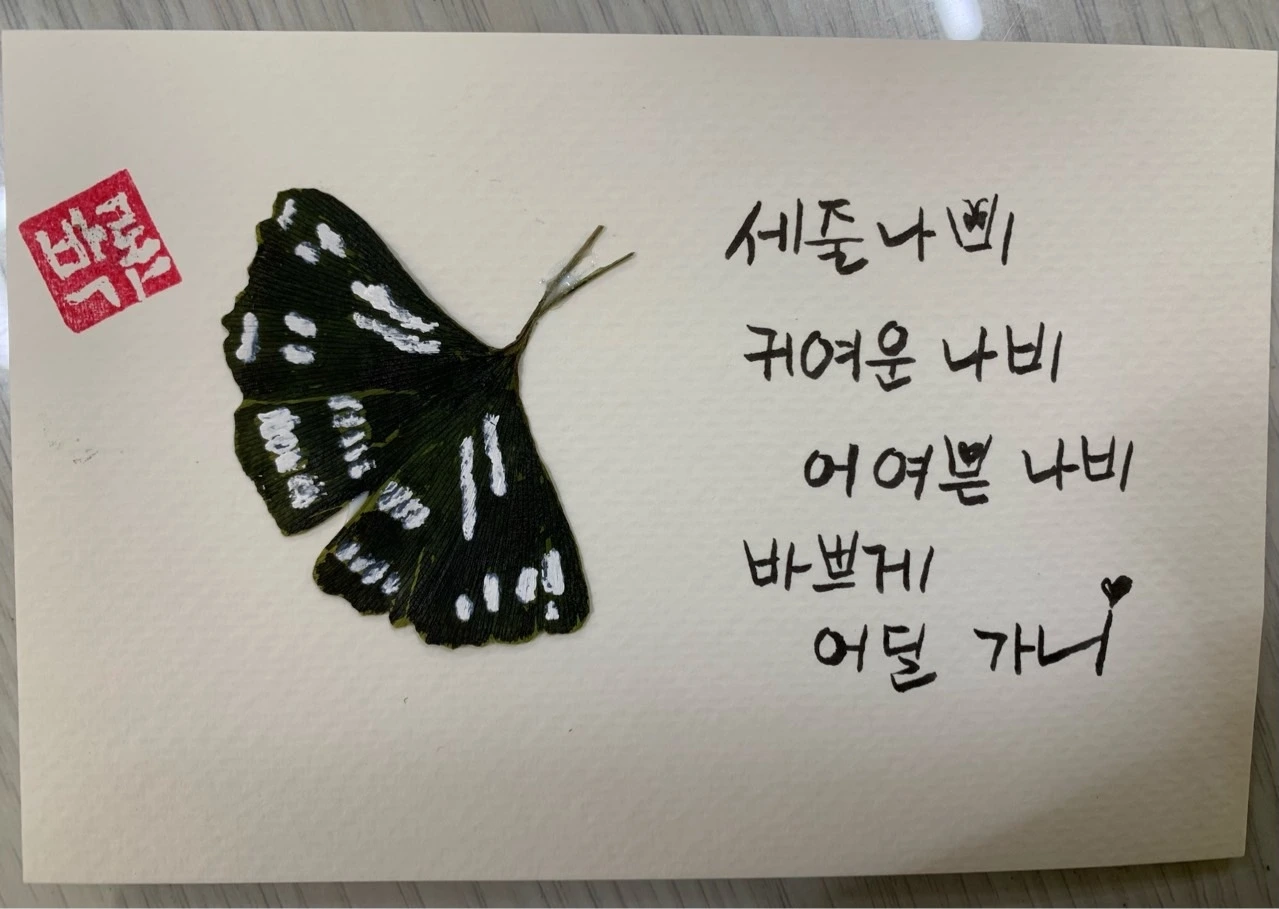 세줄나삐
귀여운 나비
어여쁜 나비
바쁘게
어딜 가니